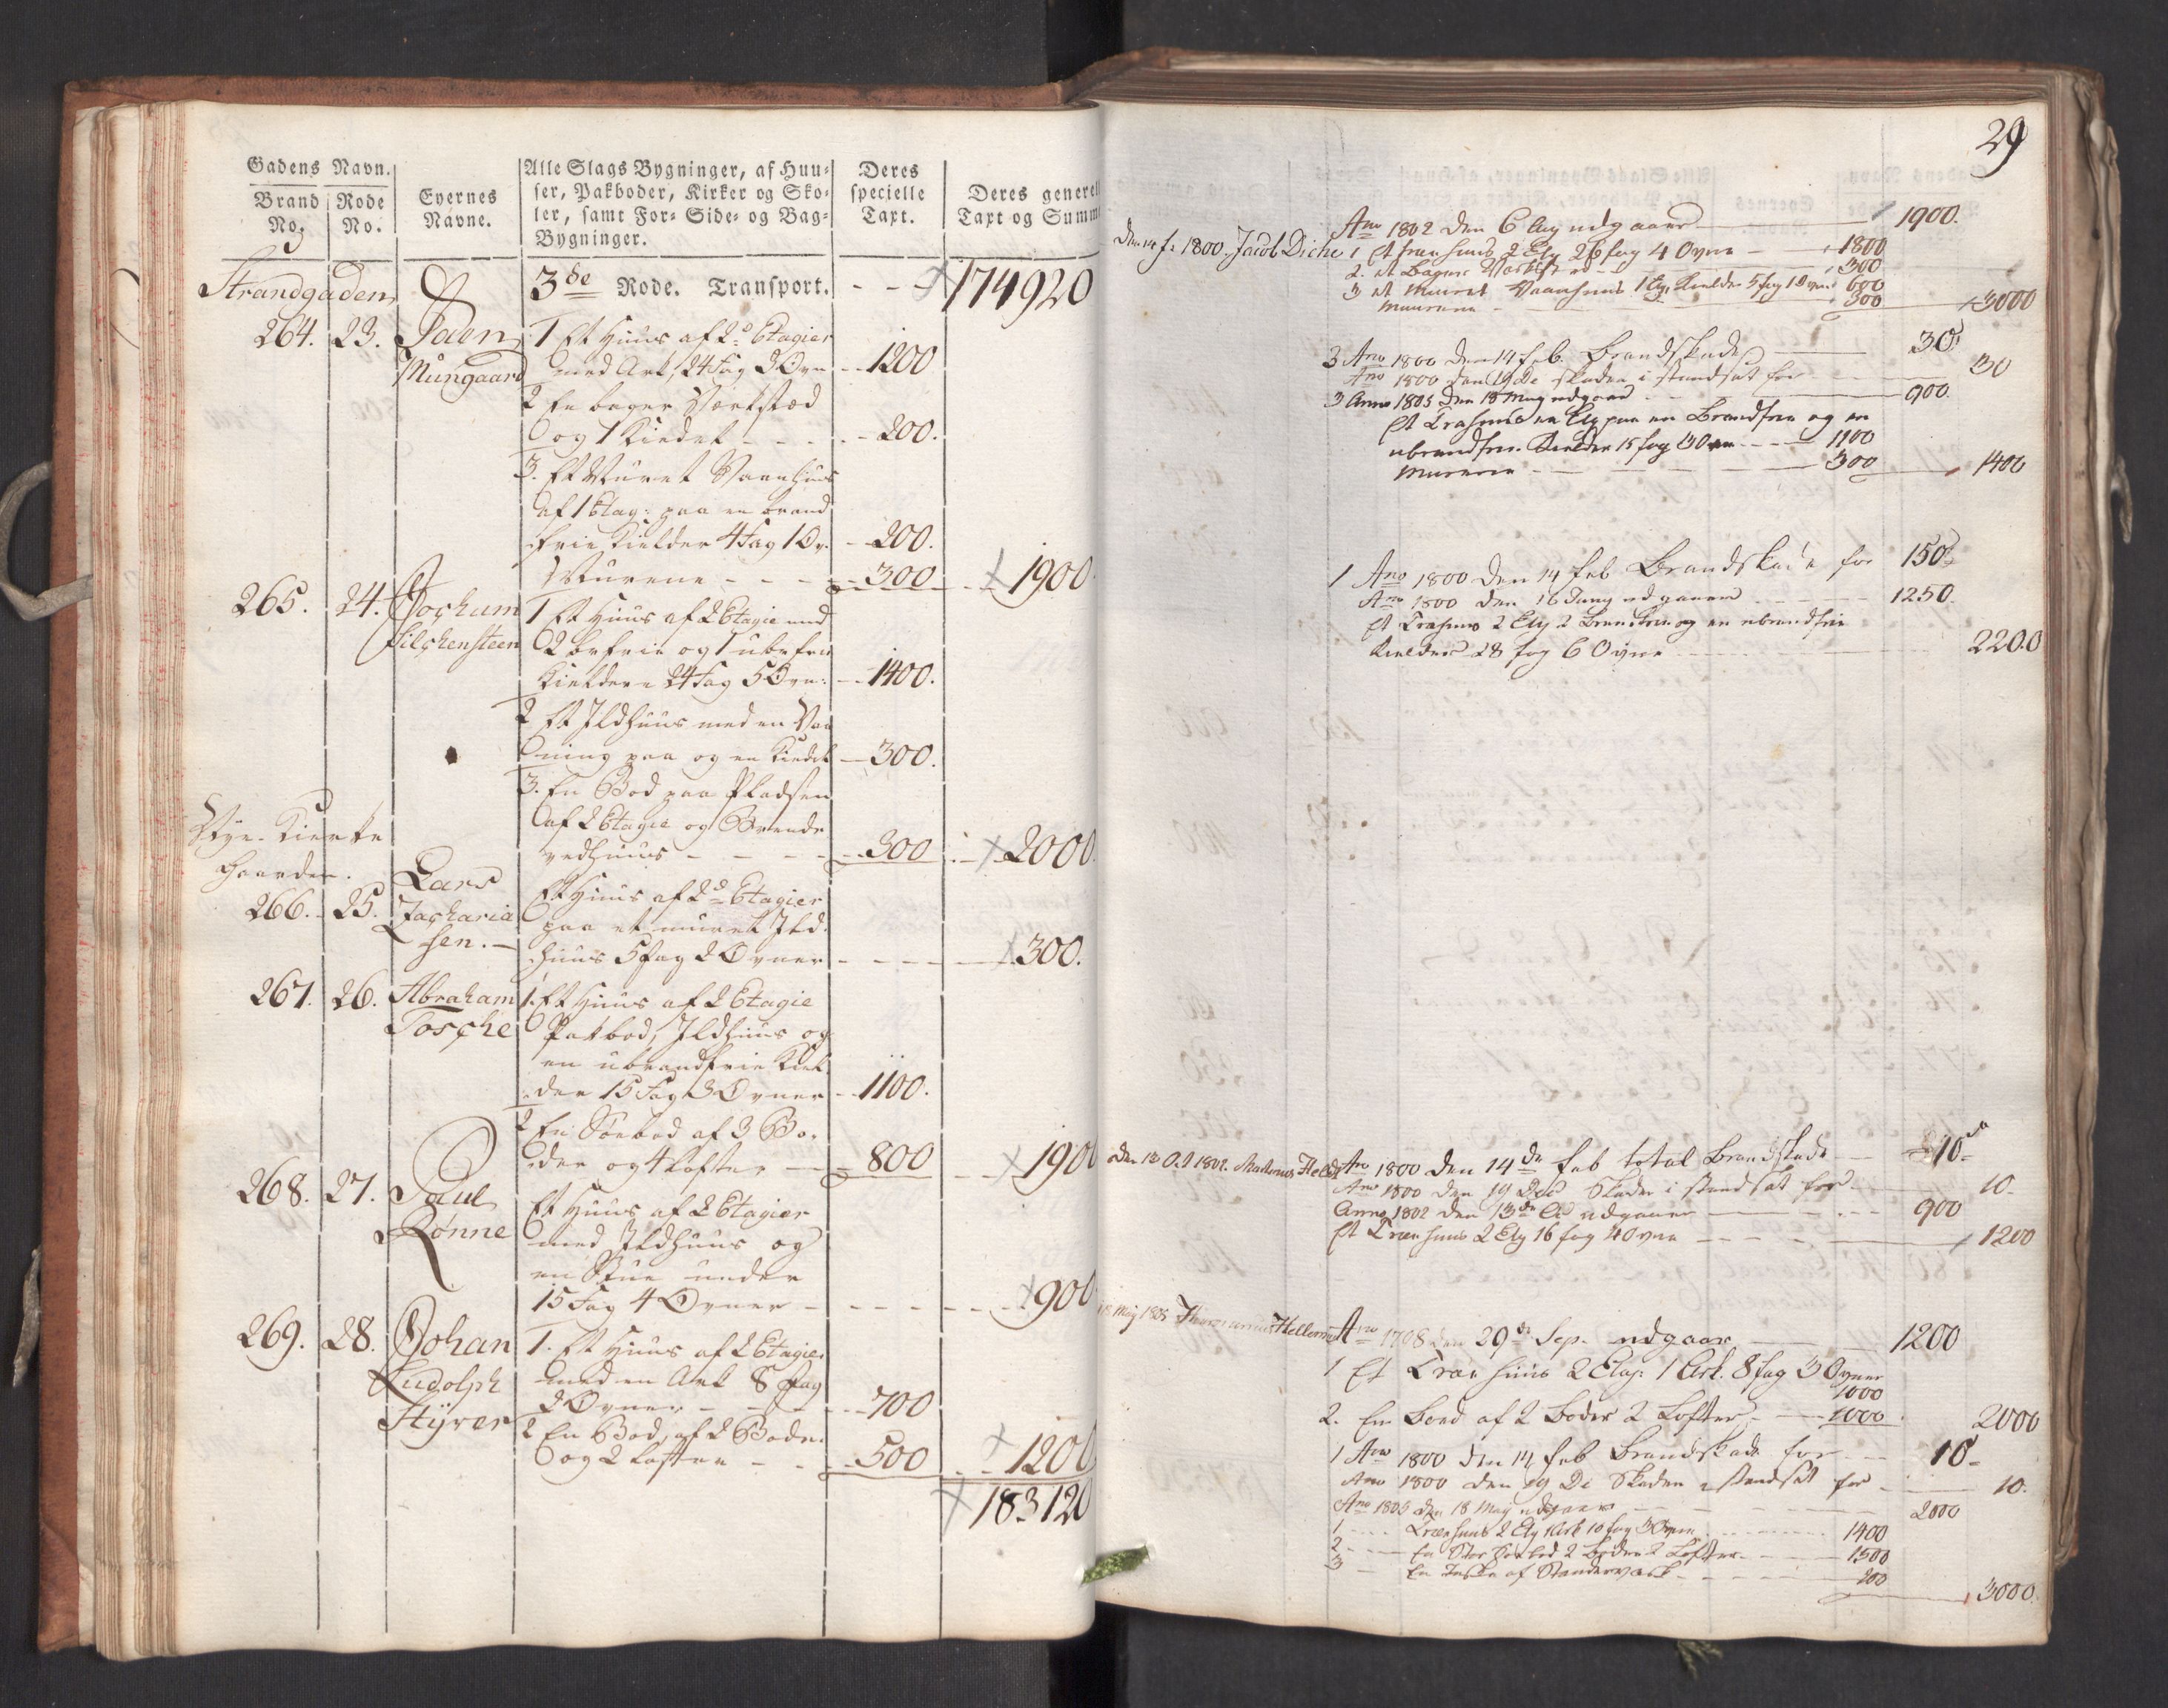 Gadens Navn.
Brand No.
Rode No.
Eyernes Navne.
Alle Slags Bygninger, af Huu-
ser, Pakboder, Kirker og Sko-
ler, samt For- Side- og Bag-
Bygninger.
Deres specielle Taxt.
Deres generel
Taxt og Summ
Strandgaden
3de Rode. Transport. - - - 174920
264. 23. Daen 1 Et Huus af 2de Etagier
Mungaard med Ark, 24 Fag 2 Ovn - - 1200
2 En bager Værksted
og 1 Kielder - - - 200.
3. Et Muret Vaanhuus
af 1 Etag: paa en brand
frie Kielder 4 Fag 1 Ov. - 200.
Murene - - - 300 - - 1900
265. 24. Jochum 1 Et Huus af 2 Etagie med
Filchensteen 2 brfrie og 1 ubrfrie
Kieldere 24 Fag 5 Ovn: - - 1400.
2 Et Ildhuus med en Vaa
ning paa og en Kielder - 300.
3. En Bod paa Pladsen
af 2 Etagie og Brende
vedhuus - - - 300 - 2000.
Nye-Kierke
Gaarden.
Lars Et Huus af 2de Etagier
266. 25. Zacharia paa et muret Ild
sen. - huus 5 Fag 2 Ovner - - - 300.
267. 26. Abraham 1. Et Huus af 2 Etagie
Tosche Pakbod, Ildhuus og
en ubrandfrie Kiel
der 15 Fag 3 Ovner - 1100.
2 En Søebod af 3 Bo-
der og 4 Lofter - 800 - - 1900
268. 27. Paul Et Huus af 2 Etagier
Rønne med Ildhuus og
en Stue under
15 Fag 4 Ovner - - - - 900
269. 28. Johan 1. Et Huus af 2 Etagier
Ludolph med en Ark 8 Fag
Styver 2 Ovner - - - 700
2 En Bod, af 2 Boder
og 2 Lofter - - 500 - - 1200
183120
29
Ano 1802 den 6 Aug udgaaer - 1900.
Den 14 f. 1800. Jacob Diche 1 Et Træe huus 2 Etg 26 fag 4 Ovne - 1800
2. et Bager Værksted - 300
3 et Muuret Vaanhuus 1 Etg. Kielder 5 fag 1 Ovn 600
Muurene - 300 3000
3 Ano 1800 den 14 Feb. Brandskade - 30
Ano 1800 den 19 De skaden i standsat for - 30
3 Anno 1805 den 18 May udgaaer - 900.
Et Træhuus en Etg paa en Brandfrie og en
ubrandfrie Kielder 15 fag 3 Ovne - - 1100
Murene - 300 1400
1 Ano 1800 den 14 Feb Brandskade for 150
Ano 1800 den 16 Juny udgaaer - 1250.
Et Træhuus 2 Etg 2 Brandfrie og en ubrandfrie
Kielder 28 fag 6 Ovne - 2200
Den 13 Oct 1802. Ano 1800 den 14de Feb total Brandskade - 10
Ano 1800 den 19 Dec Skaden i standsat for - 10.
Anno 1802 den 13de udgaaer - 900
Et Træe huus 2 Etg 16 fag 4 Ovne - - 1200
18 May 1805 Ano 1798 den 29de Sep. udgaar - 1200
1 Et Træe huus 2 Etag: 1 Ark. 8 fag 3 Ovner
1000
2. En Boed af 2 Boder 2 Lofter, - 1000 2000
1 Ano 1800 den 14 Feb Brandskade for - 10 -
Ano 1800 den 19 De Skaden istandsat for - 10.
Ano 1805 den 18 May udgaaer - 2000
1 - - Træe huus 2 Etg 1 Ark 10 fag 3 Ovne - 1400
2 - - En Stor Søebod 2 Boder 2 Lofter - 1500
3 - En af Standerværk - 200
3000.